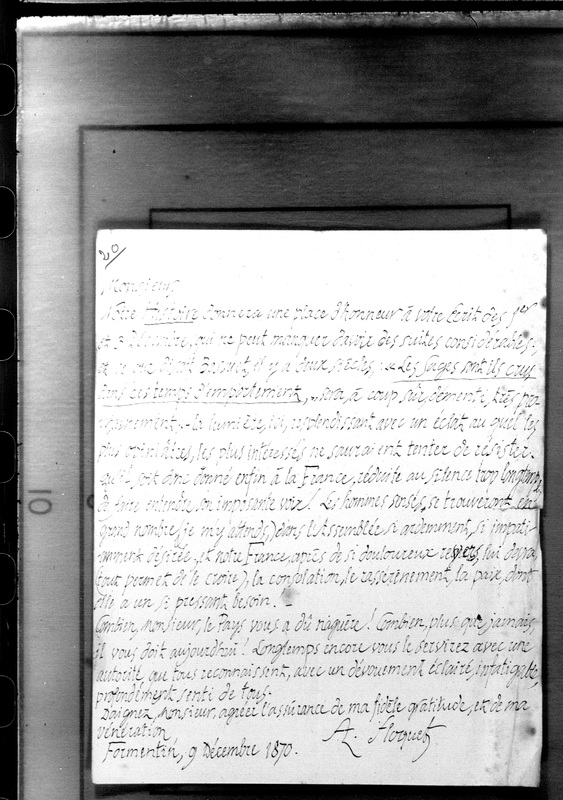 20/
Monsieur,
Notre Histoire donnera une place d'honneur à votre Écrit des 1er
et 3 Décembre, qui ne peut manquer d'avoir des suites considérables;
et ce que disait Bossuet, il y a deux siècles: « Les Sages sont ils crus
dans ces temps d'emportement, » sera, à coup sûr, démenti, très pro-
-la lumière, ici, resplendissant avec un éclat auquel les
plus opiniâtres, les plus intéressés ne sauraient tenter de résister.
qu'il soit donc donné enfin à la France, réduite au silence trop longtemps,
de faire entendre son imposante voix! Les hommes sensés se trouveront en
grand nombre (je m'y attends) dans l'Assemblée si ardemment, si impati-
emment désirée, et notre France, après de si douloureux revers, lui devra
(tout permet de le croire), la consolation, le rassérènement, la paix, dont
elle a un si pressant besoin. _
Combien, Monsieur, le Pays vous a dû naguère! Combien, plus que jamais,
il vous doit aujourdhui! Longtemps encore vous le servirez avec une
autorité que tous reconnaissent, avec un dévouement éclairé, infatigable,
profondément senti de tous.
Daignez, Monsieur, agréer l'assurance de ma fidèle gratitude, et de ma
vénération,
A. Floquet
Formentin, 9 Décembre 1870.
10